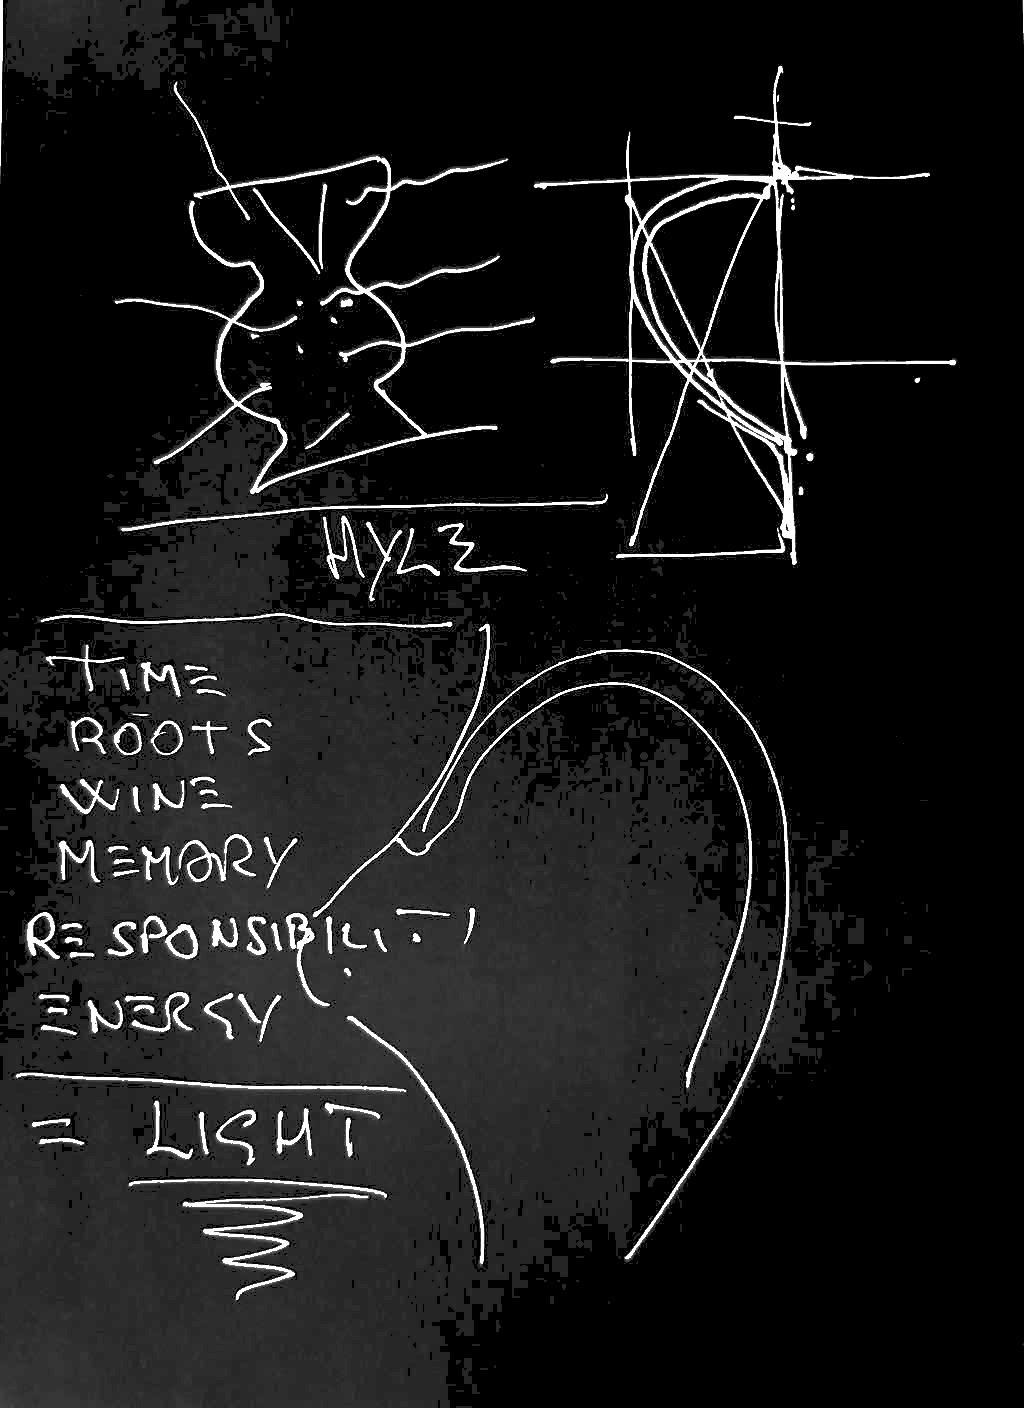 HYLE
TIME
ROOTS
WINE
MEMORY
RESPONSIBILITY
ENERGY
= LIGHT